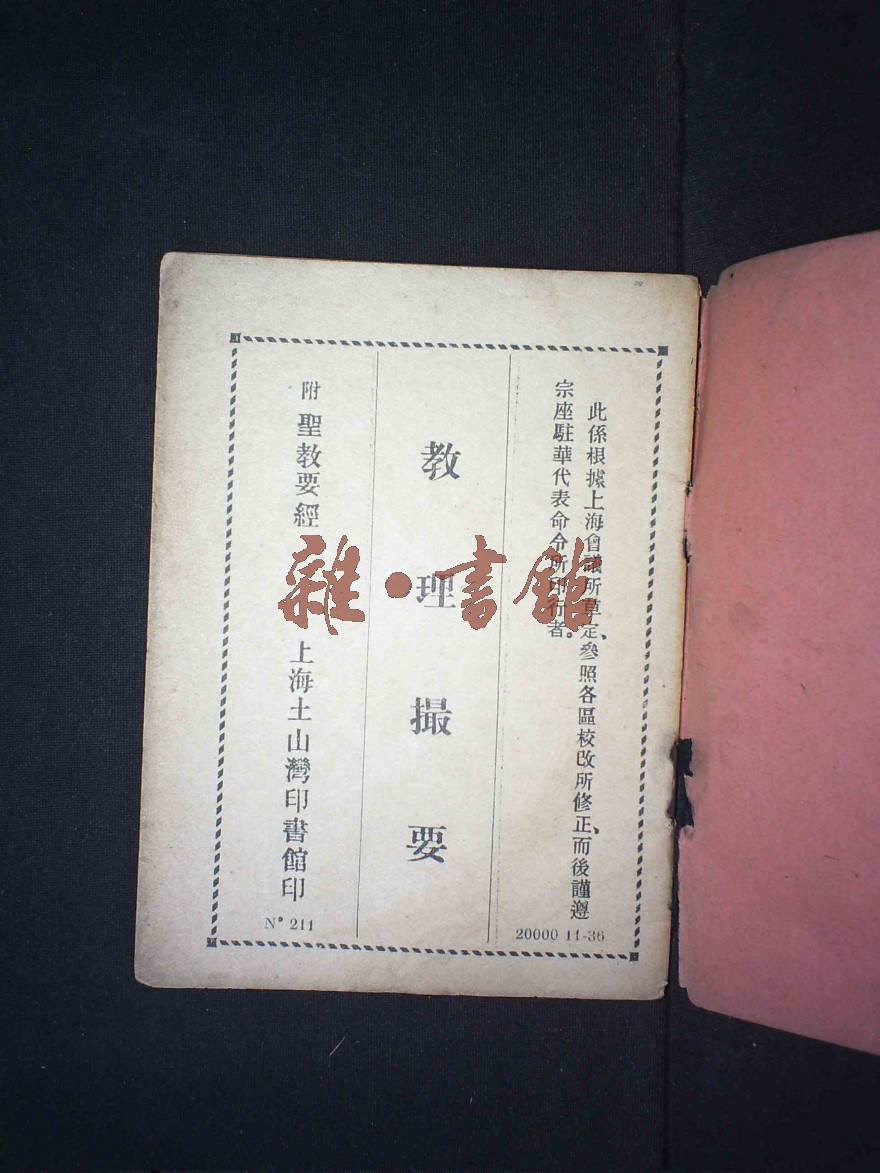 此係根據上海會議所草定、參照各區校改所修正、而後謹遵
宗座駐華代表命令所印行者。
20000 11-36
教理撮要
附 聖教要經
上海土山灣印書館印
N° 211
雜·書館